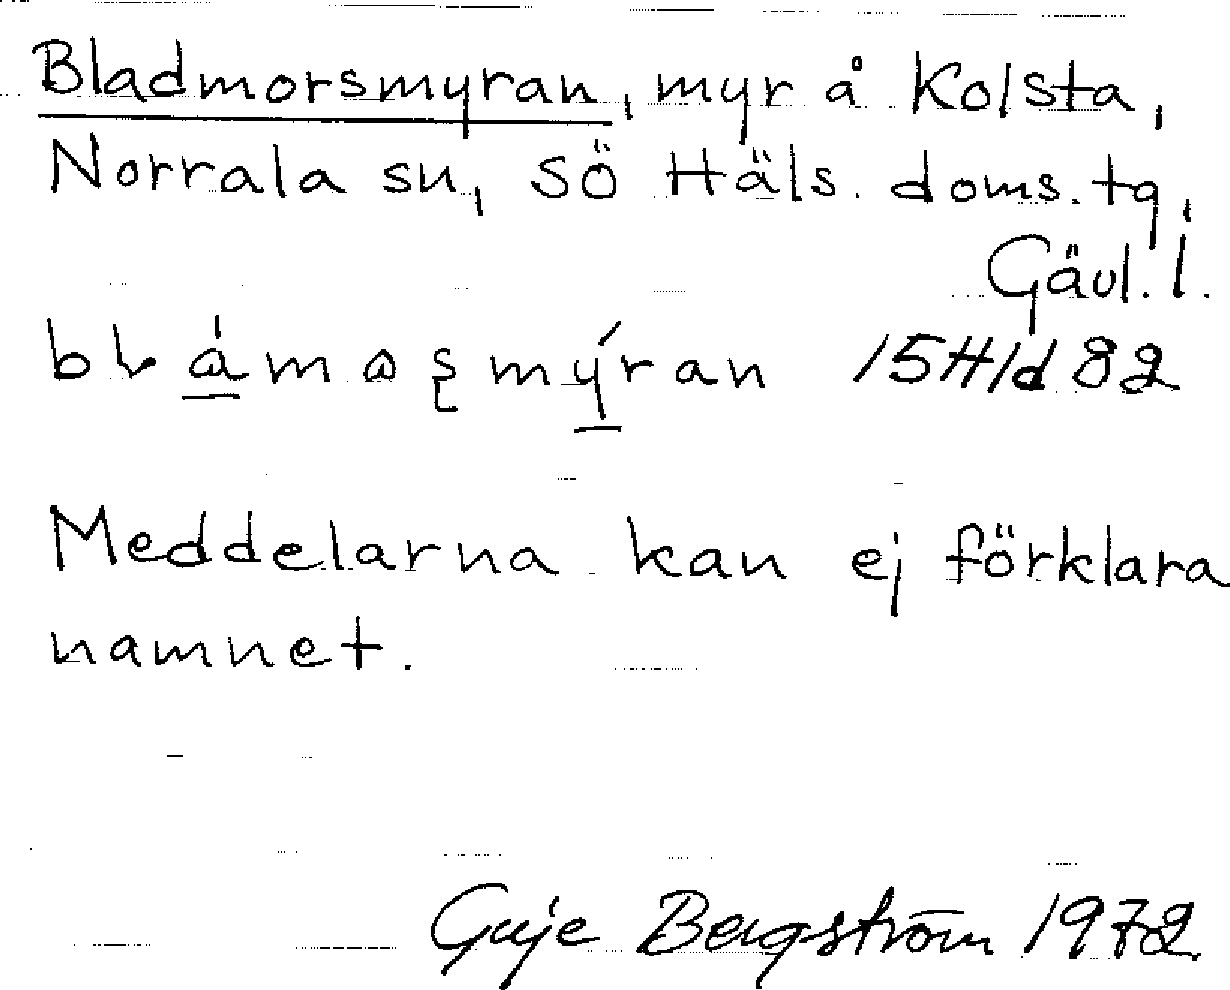 Bladmorsmyran, myr å Kolsta,
Norrala sn, SÖ Häls. doms. tg,
Gävl. l.
15H1d82
Meddelarna kan ej förklara
namnet.
Bergström 1972